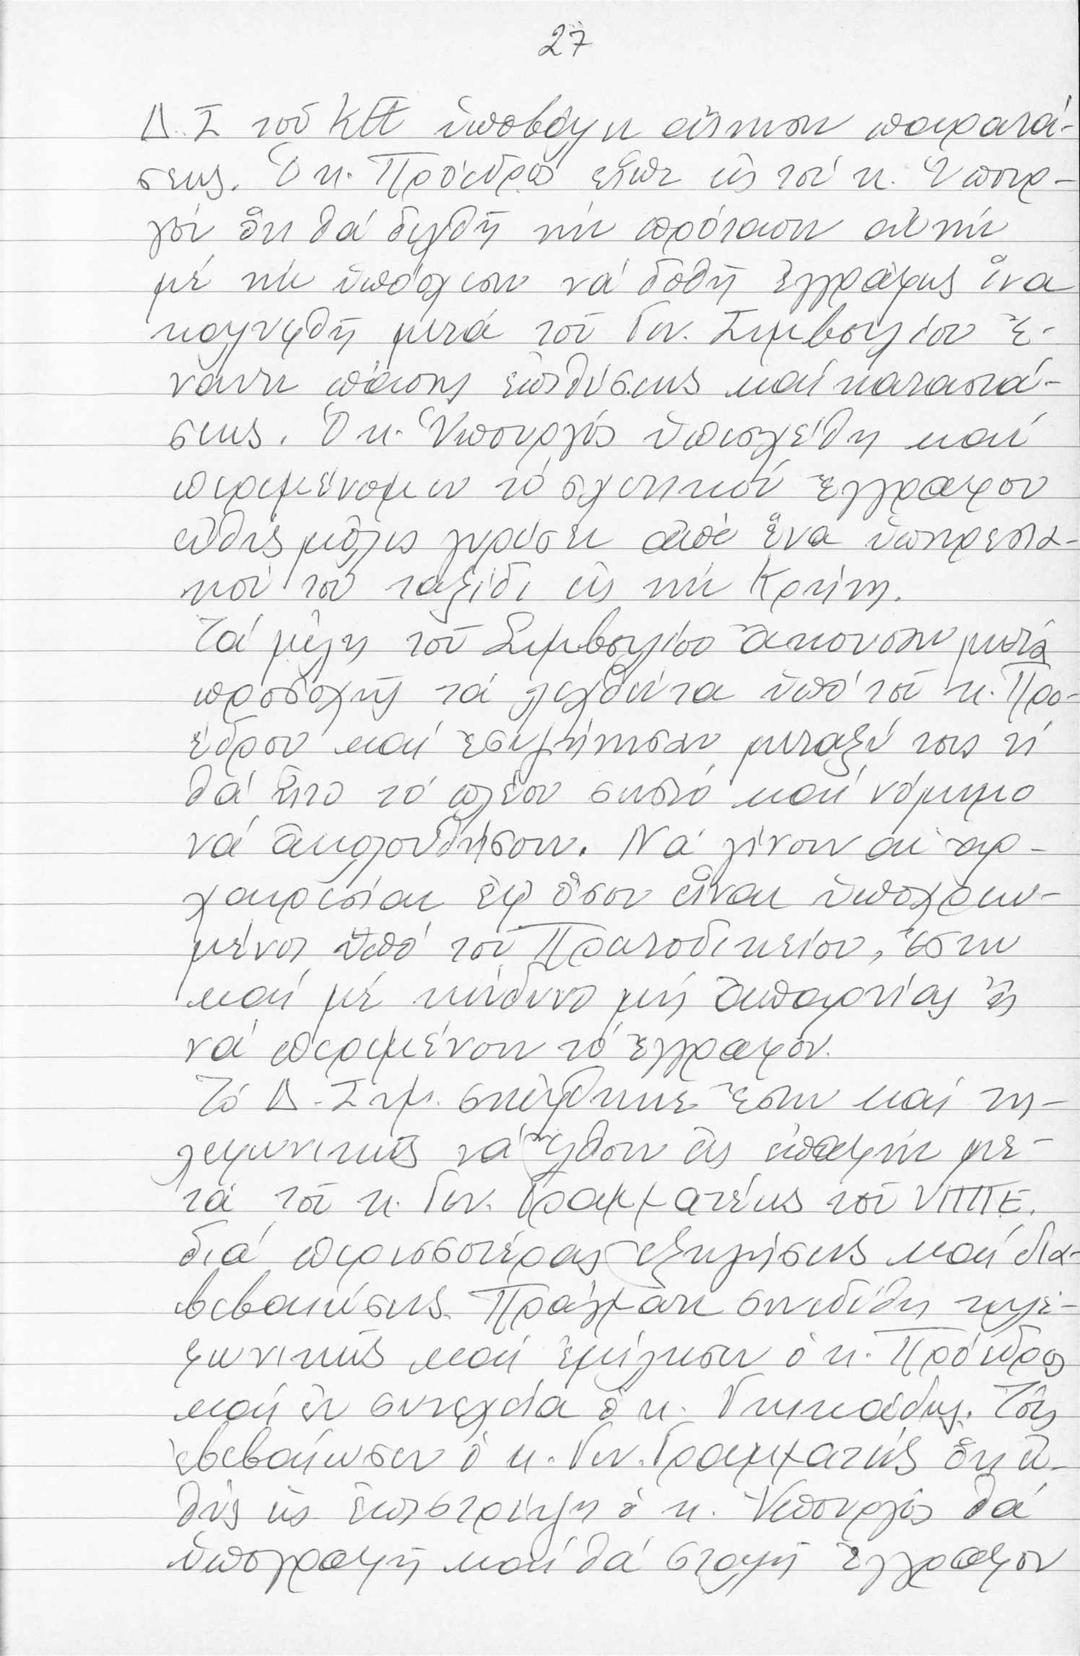 27
Δ.Σ τοῦ ΚΠ ὑποβάλῃ αἴτησιν παρατά-
σεως. Ὁ κ. Πρόεδρος εἶπε εἰς τόν κ. Ὑπουρ-
γόν ὅτι θά δεχθῆ τήν πρότασιν αὐτήν
μέ τήν ὑπόσχεσιν νά δοθῆ ἐγγράφως ἵνα
καλυφθῆ μετά τοῦ Γεν. Συμβουλίου ἔ-
ναντι πάσης ἐπιθέσεως καί καταστά-
σεως. Ὁ κ. Ὑπουργός ὑπεσχέθη καί
περιμένομεν τό σχετικόν ἔγγραφον
εὐθύς μόλις γυρίσει ἀπό ἕνα ὑπηρεσια-
κόν του ταξίδι εἰς τήν Κρήτη.
Τά μέλη τοῦ Συμβουλίου ἄκουσαν μετά
προσοχῆς τά λεχθέντα ὑπό τοῦ κ. Προ-
έδρου καί ἐσυζήτησαν μεταξύ τους τί
θά ἦτο τό πλέον σωστό καί νόμιμο
νά ἀκολουθήσουν. Νά γίνουν αἱ ἀρ-
χαιρεσίαι ἐφ ὅσον εἶναι ὑποχρεω-
μένοι ὑπό τοῦ Πρωτοδικείου, ἔστω
καί μέ κίνδυνο μή ἀπαρτίας ἤ
νά περιμένουν τό ἔγγραφον.
Τό Δ. Συμ. σκέφθηκε ἔστω καί τη-
λεφωνικῶς νά ἔλθουν εἰς ἐπαφήν με-
τά τοῦ κ. Γεν. Γραμματέως τοῦ ΥΠΠΕ.
διά περισσοτέρας ἐξηγήσεις καί δια-
βεβαιώσεις. Πράγματι συνεδέθη τηλε-
φωνικῶς καί ἐμίλησεν ὁ κ. Πρόεδρος
καί ἐν συνεχεία ὁ κ. Γκικάδης. Τούς
ἐβεβαίωσεν ὁ κ. Γεν. Γραμματεύς ὅτι εὐ-
θύς ὡς ἐπιστρέψη ὁ κ. Ὑπουργός θά
ὑπογραφῆ καί θά σταλῆ ἔγγραφον